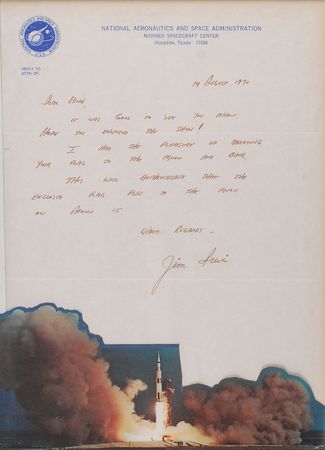 NATIONAL AERONAUTICS AND SPACE ADMINISTRATION
MANNED SPACECRAFT CENTER
HOUSTON, TEXAS 77058
REPLY TO
ATTN OF:
August
Dear
It was good to see you again
Hope you enjoyed the show!
I had the pleasure of carrying
your flag to the Moon and back.
This will authenticate that the
enclosed flag flew to the Moon
on Apollo 15.
Warm Regards -
Jim Irwin